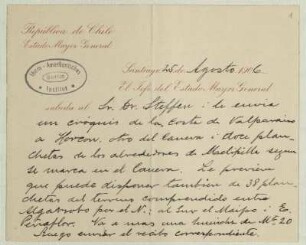 República de Chile
Estado Mayor General
Ibero-Amerikanisches
Berlin
Institut
Santiago, 25 de Agosto 1906
El Jefe del Estado Mayor General
saluda al Sr. Dr. Steffen i le envia
un cróquis de la Costa de Valparaiso
a Horcon, otro del Canevá i doce plan-
chetas de los alrededores de Melipilla segun
se marca en el Canevá. Le previene
que puede disponer tambien de 38 plan-
chetas del terreno comprendido entre
Algarrobo por el N; al Sur el Maipo i E.
Peñaflor. Va a mas una
Ruego enviar el recibo correspondiente.